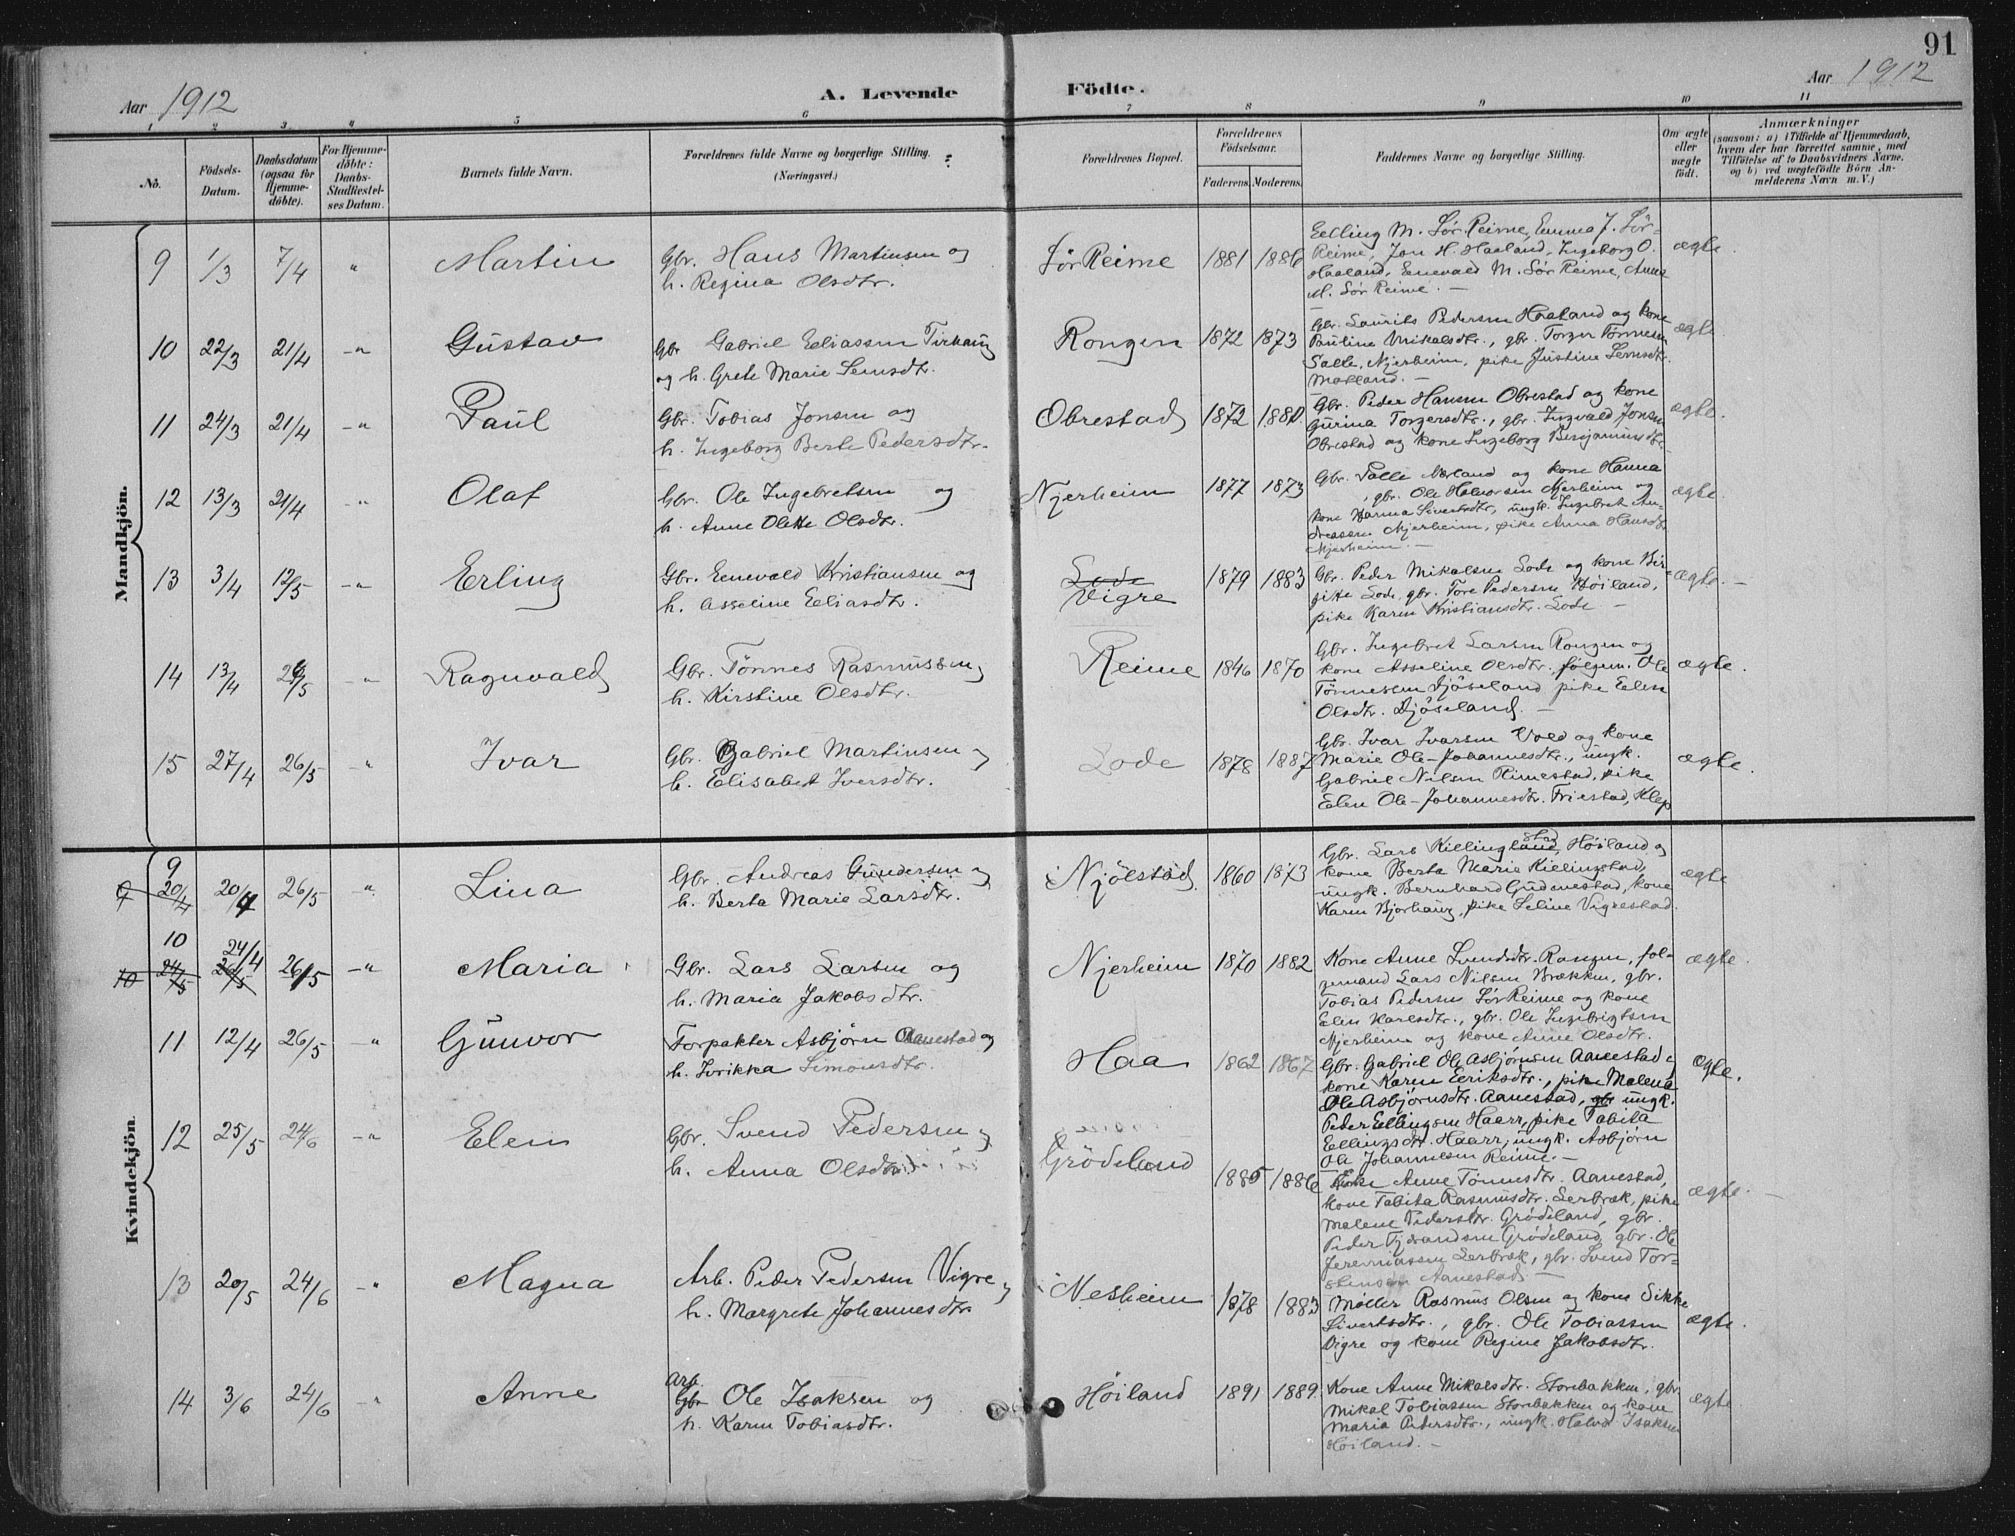 91
Aar 1912
A. Levende Födte.
Aar 1912
1 2 3 4 5 6 7 8 9 10 11
No.
Födsels-Datum.
Daabsdatum (ogsaa for Hjemme-döbte).
For Hjemme-döbte: Daabs-Stadfæstel-ses Datum.
Barnets fulde Navn.
Forældrenes fulde Navne og borgerlige Stilling. (Næringsvei.)
Forældrenes Bopæl.
Forældrenes Födselsaar.
Faderens. Moderens.
Faddernes Navne og borgerlige Stilling.
Om ægte eller uægte födt.
Anmærkninger
(saasom: a) i Tilfælde af Hjemmedaab, hvem der har forrettet samme, med Tilföielse af to Daabsvidners Navne, og b) ved uægtefödte Börn An-melderens Navn m. V.)
Mandkjön.
9 1/3 7/4 " Martin
Gbr. Hans Martinsen og
h. Regina Olsdtr.
Sør Reime 1881 1886
Elling M. Sør Reime, Emma J. Sør-
Reime, Jon H. Haaland, Ingeborg O.
Haaland, Enevald M. Sør Reime, Anne
M. Sør Reime. —
ægte
10 22/3 21/4 -" Gustav
Gbr. Gabriel Eeliassen Tirhaug
og h. Grete Marie Semsdtr.
Rongen 1872 1873
Gbr. Laurits Pedersen Haaland og kone
Pauline Mikalsdtr., gbr. Torger Tønnesen
Salte, Njerheim, pike Justine Semsdtr.
Matland. —
ægte
11 24/3 21/4 -" Paul
Gbr. Tobias Jonsen og
h. Ingeborg Berte Pedersdtr.
Obrestad 1872 1880
Gbr. Peder Hansen Obrestad og kone
Gurina Torgersdtr., gbr. Ingvald Jonsen
Obrestad og kone Ingeborg Benjaminsdtr.
ægte.
12 13/3 21/4 -" Olaf
Gbr. Ole Ingebretsen og
h. Anne Olette Olsdtr.
Njerheim 1877 1873
Gbr. Salle Nærland og kone Hanna
, gbr. Ole Halvorsen Njerheim og
kone Hanna Sivertsdtr., ungk. Ingebret An-
dreassen Njerheim, pike Anna Hansdtr.
Njerheim. —
ægte
13 3/4 12/5 -" Erling
Gbr. Enevald Kristiansen og
h. Asseline Eeliasdtr.
Lode Vigre 1879 1883
Gbr. Peder Mikalsen Lode og kone Bir-
gitte Lode, gbr. Tore Pedersen Høiland,
pike Karen Kristiansdtr. Lode —
ægte. —
14 13/4 26/5 -" Ragnvald
Gbr. Tönnes Rasmussen,
h. Kirstine Olsdtr.
Reime 1846 1870
Gbr. Ingebret Larsen Rongen og
kone Asseline Olsdtr. følgem. Ole
Tönnesen Djöseland pike Elen
Olsdtr. Djöseland. —
ægte.
15 27/4 26/5 -" Ivar
Gbr. Gabriel Martinsen og
h. Elisabet Iversdtr.
Lode 1878 1887
Gbr. Ivar Ivarsen Vold og kone
Marie Ole-Johannesdtr., ungk.
Gabriel Nilsen Rimestad, pike
Elen Ole-Johannesdtr. Friestad, Klep
ægte.
Kvindekjön.
9
9 20/4 20/4 26/5 -" Lina
Gbr. Andreas Gundersen og
h. Berta Marie Larsdtr.
Njölstad 1860 1873
Gbr. Lars Kiellingland stad, Höiland og
kone Berta Marie Kielingstad,
ungk. Bernhard Gudmestad, kone
Karen Bjorhaug, pike Seline Vigrestad.
ægte
10
10 24/5 26/5 24/4 26/5 -" Maria
Gbr. Lars Larsen og
h. Maria Jakobsdtr.
Njerheim 1870 1882
Kone Anne Svendsdtr. Rongen, føl-
gemand Lars Nilsen Brækken, gbr.
Tobias Pedersen Sør Reime og kone
Elen Karlsdtr., gbr. Ole Ingebrigtsen
Njerheim og kone Anne Olsdtr.
ægte.
11 12/4 26/5 -" Gunvor
Forpakter Asbjörn Aanestad og
h. Inrikka Simonsdtr.
Haa 1862 1867
Gbr. Gabriel Ole Asbjörnsen Aanestad,
kone Karen Eeriksdtr., pike Malena
Ole Asbjörnsdtr. Aanestad, gbr ungk.
Peder Eellingsen Haarr, pike Tabita
Eellingsdtr. Haarr, ungk. Asbjörn
Ole Johannesen Reime. —
ægte.
12 25/5 24/6 -" Elen
Gbr. Svend Pedersen og
h. Anna Olsdtr.
Grödeland 1885 1886
Anne Tönnesdtr. Aanestad,
kone Tabita Rasmusdtr. Serbræk, pike
Malene Pedersdtr. Grödeland, gbr.
Peder Tjerandsen Grödeland, gbr. Ole
Jeremiassen Serbræk, gbr. Svend Tor-
stensen Aanestad —
ægte. —
13 20/5 24/6 -" Magna
Arb. Peder Pedersen Vigre og
h. Margrete Johannesdtr.
Nesheim 1878 1883
Møller Rasmus Olsen og kone Sikke
Sivertsdtr., gbr. Ole Tobiassen
Vigre og kone Regine Jakobsdtr.
ægte.
14 3/6 24/6 -" Anne
Arb.
Gbr Ole Isaksen og
h. Karen Tobiasdtr.
Höiland 1891 1889
Kone Anne Mikalsdtr. Storebakken, gbr.
Mikal Tobiassen Storebakken og kone
Maria Pedersdtr., ungk. Halvor Isaksen
Höiland. —
ægte